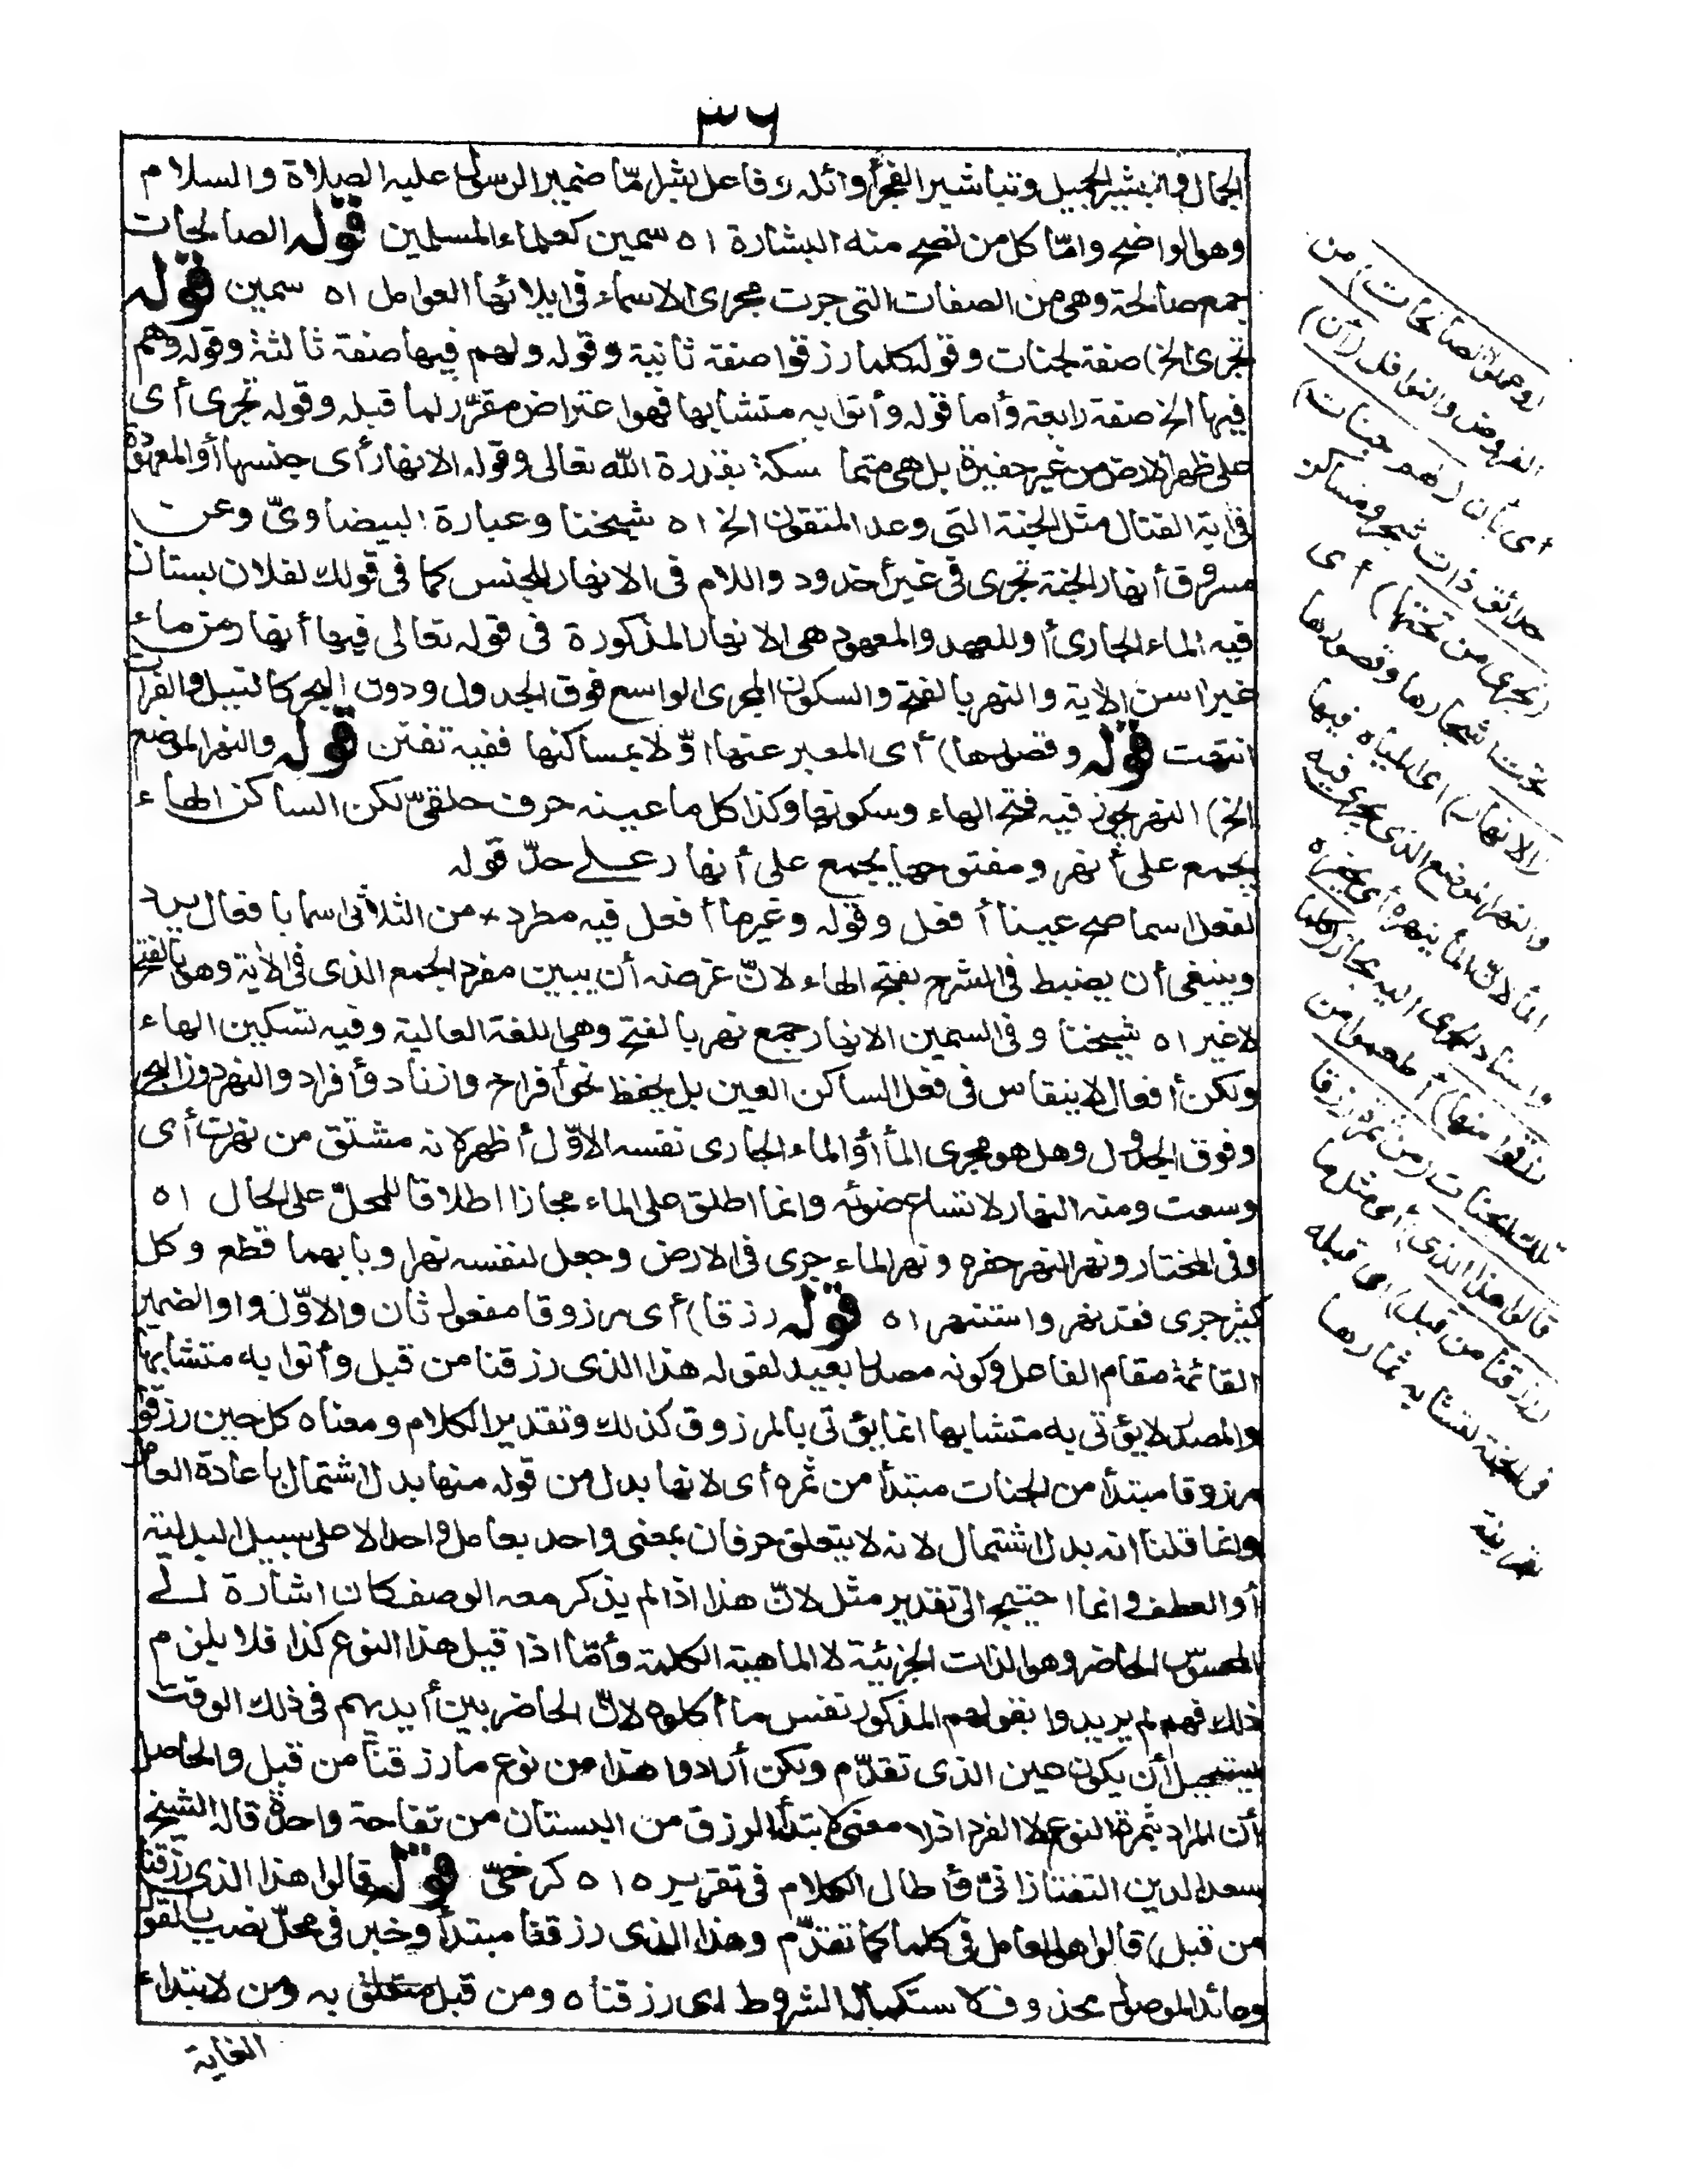 ٣٦
الجمال والبشير الجميل وتباشير الفجر أوائله وفاعل بشر إمّا ضمير الرسول عليه الصلاة والسلام
وهو الواضح وامّا كل من تصح منه البشارة اه سمين كعلماء المسلمين قوله الصالحات
جمع صالحة وهى من الصفات التى جرت مجرى الاسماء فى ايلائها العوامل اه سمين قوله
تجرى الخ) صفة لجنات وقوله كلما رزقوا صفة ثانية وقوله ولهم فيها صفة ثالثة وقوله وهم
فيها الخ صفة رابعة وأما قوله وأتوا به متشابها فهو اعتراض مقرّر لما قبله وقوله تجرى أى
على ظهر الارض من غير حفيرة بل هى متماسكة بقدرة الله تعالى وقوله الانهار أى جنسها أو المعهودة
فى آية القتال مثل الجنة التى وعد المتقون الخ اه شيخنا وعبارة البيضاوىّ وعن
مسروق أنهار الجنة تجرى فى غير أخدود واللام فى الانهار للجنس كما فى قولك لفلان بستان
فيه الماء الجارى أو للعهد والمعهود هى الانهار المذكورة فى قوله تعالى فيها أنهار من ماء
غير آسن الآية والنهر بالفتح والسكون المجرى الواسع فوق الجدول ودون البحر كالنيل والفرات
انتهت قوله وقصورها) أى المعبر عنها اوّلا بمساكنها ففيه تفنن قوله والنهر الموضع
الخ) النهر يجوز فيه فتح الهاء وسكونها وكذا كل ما عينه حرف حلقىّ لكن الساكن الهاء
يجمع على أنهر ومفتوحها يجمع على أنهار على حدّ قوله
لفعل اسما صح عينا أفعل وقوله وغير ما أفعل فيه مطرد * من الثلاثى اسما بافعال يرد
وينبغى أن يضبط فى الشرح بفتح الهاء لانّ غرضه أن يبين مفرد الجمع الذى فى الآية وهو بالفتح
لا غير اه شيخنا وفى السمين الانهار جمع نهر بالفتح وهى اللغة العالية وفيه تسكين الهاء
ولكن أفعال لا ينقاس فى فعل الساكن العين بل يحفظ نحو أفراخ وازناد وأفراد والنهر دون البحر
وفوق الجدول وهل هو مجرى الماء أو الماء الجارى نفسه الاوّل أظهر لانه مشتق من نهرت أى
وسعت ومنه النهار لاتساع ضوئه وانما اطلق على الماء مجازا اطلاقا للمحلّ على الحال اه
وفى المختار ونهر النهر حفره ونهر الماء جرى فى الارض وجعل لنفسه نهرا وبابهما قطع وكل
كثير جرى فقد نهر واستنهر اه قوله رزقا) أى مرزوقا مفعول ثان والاوّل واو الضمير
القائمة مقام الفاعل وكونه مصدرا بعيد لقوله هذا الذى رزقنا من قبل وأتوا به متشابها
والمصدر لا يؤتى به متشابها انما يؤتى بالمرزوق كذلك وتقدير الكلام ومعناه كل حين رزقوا
مرزوقا مبتدأ من الجنات مبتدأ من ثمره أى لانها بدل من قوله منها بدل اشتمال باعادة العامل
وانما قلنا انه بدل اشتمال لانه لا يتعلق حرفان بمعنى واحد بعامل واحد الا على سبيل البدلية
أو العطف وانما احتيج الى تقدير مثل لانّ هذا اذا لم يذكر معه الوصف كان اشارة الى
المحسوس الحاضر وهو الذات الجزئية لا الماهية الكلية وأمّا اذا قيل هذا النوع كذا فلا يلزم
ذلك فهم لم يريدوا بقولهم المذكور نفس ما أكلوه لانّ الحاضر بين أيديهم فى ذلك الوقت
يستحيل أن يكون عين الذى تقدّم ولكن أرادوا هذا من نوع ما رزقنا من قبل والحاصل
أن المراد بثمرة النوع لا الفرد اذ لا معنى لابتداء الرزق من البستان من تفاحة واحدة قاله الشيخ
سعد الدين التفتازانىّ وأطال الكلام فى تقريره اه كرخىّ قوله قالوا هذا الذى رزقنا
من قبل) قالوا هو العامل فى كلما كما تقدّم وهذا الذى رزقنا مبتدأ وخبر فى محلّ نصب بالقول
وعائد الموصول محذوف لاستكمال الشروط اى رزقناه ومن قبل متعلق به ومن لابتداء
الغاية
(وعملوا الصالحات) من
الفروض والنوافل (أن)
أى بأن (لهم جنات)
حدائق ذات شجر ومساكن
(تجرى من تحتها) أى
تحت أشجارها وقصورها
(الانهار) أى المياه فيها
والنهر الموضع الذى يجرى فيه
الماء لانّ الماء ينهره أى يحفره
واسناد الجرى اليه مجاز (كلما
رزقوا منها) أطعموا من
تلك الجنات (من ثمرة رزقا
قالوا هذا الذى) أى مثل ما
(رزقنا من قبل) أى قبله
فى الجنة لتشابه ثمارها
بقرينة